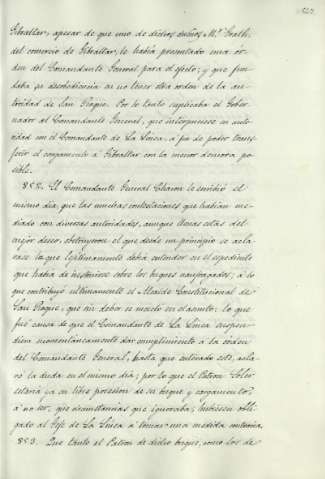 Gibraltar, apesar de que uno de dichos dueños, Mr.
del comercio de Gibraltar, le habia presentado una or-
den del Comandante General para el efecto; y que fun-
daba su desobediencia en no tener otra orden de la au-
toridad de San Roque. Por lo tanto suplicaba el Gober-
nador al Comandante General, que interpusiese su auto-
ridad con el Comandante de La Linea, á fin de poder trans-
ferir el cargamento á Gibraltar con la menor demora po-
sible.
852. El Comandante General le escribió el
mismo dia, que las muchas contestaciones que habian me-
diado con diversas autoridades, aunque llenas estas del
mejor deseo, obstruyeron el que desde un principio se acla-
rase la que legitimamente debia entender en el espediente
que habia de instruirse sobre los buques naufragados; á lo
que contribuyó ultimamente el Alcalde Constitucional de
San Roque, que sin deber se mezcló en el asunto: lo que
fué causa de que el Comandante de La Linea suspen-
diera momentaneamente dar cumplimiento á la orden
del Comandante General, hasta que enterado este, acla-
ró la duda en el mismo dia; por lo que el Patron
estaria ya en libre posesion de su buque y cargamento,
á no ser, que circunstancias que ignoraba, hubiesen obli-
gado al Gefe de La Linea á tomar una medida contraria.
853. Que tanto el Patron de dicho buque, como los de